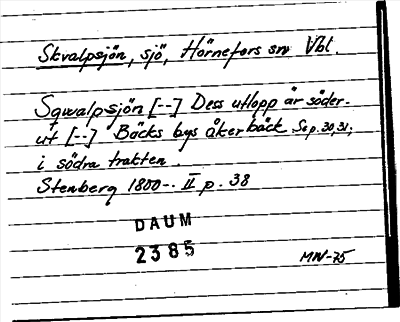 Skvalpsjön, sjö, Hörnefors sn Vbt.
Sqwalpsjön [--] Dess utlopp är söder-
ut [--] Bäcks bys åkerbäck Se p. 30, 31;
i södra trakten.
Stenberg 1800-. II p. 38
DAUM
2385
MW-75